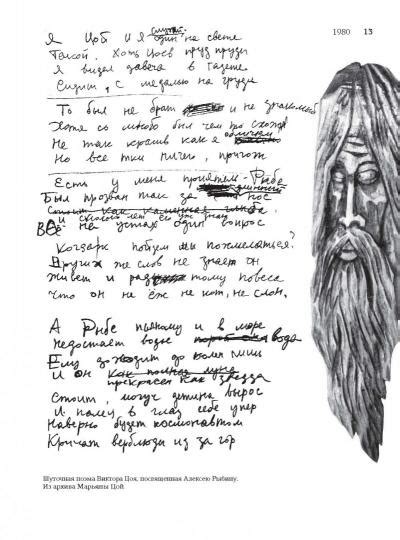 1980 13
Я Цой и я один на свете
Такой. Хоть Цоев пруд пруди
Я видел давеча в газете
Сидит, с медалью на груди
То был не брат и не знакомый
Хотя со мною был чем то схож
обличьем
Не так красив как я
Но все тки ничего, пригож
Есть у меня приятель - Рыба
длинный
Был прозван так за нос
Стоит как каменная глыба.
и сколько лет его уж знаю
ВСЕ на устах один вопрос
Когда ж пойдем мы похмеляться?
Других же слов не знает он
Живет и рад тому повеса
Что он не ёж не кот, не слон.
А Рыбе пьяному и в море
Недостает воды вода
Ему доходит до колен
И он как полная луна
прекрасен как звезда
Стоит, могуч детина вырос
И палец в глаз себе упер
Наверно будет космонавтом
Кричат верблюды из за гор
Шуточная поэма Виктора Цоя, посвященная Алексею Рыбину.
Из архива Марьяны Цой